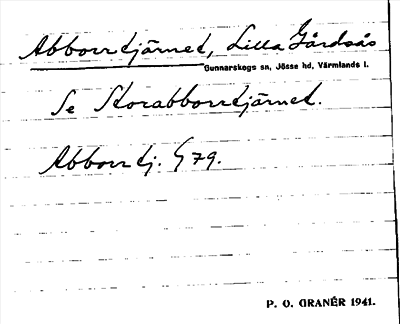 Abborrtjärnet, Lilla Gårdsås
Gunnarskogs sn, Jösse hd, Värmlands l.
Se Storabborrtjärnet.
Abborrtj. G 79.
P. O. GRANÉR 1941.